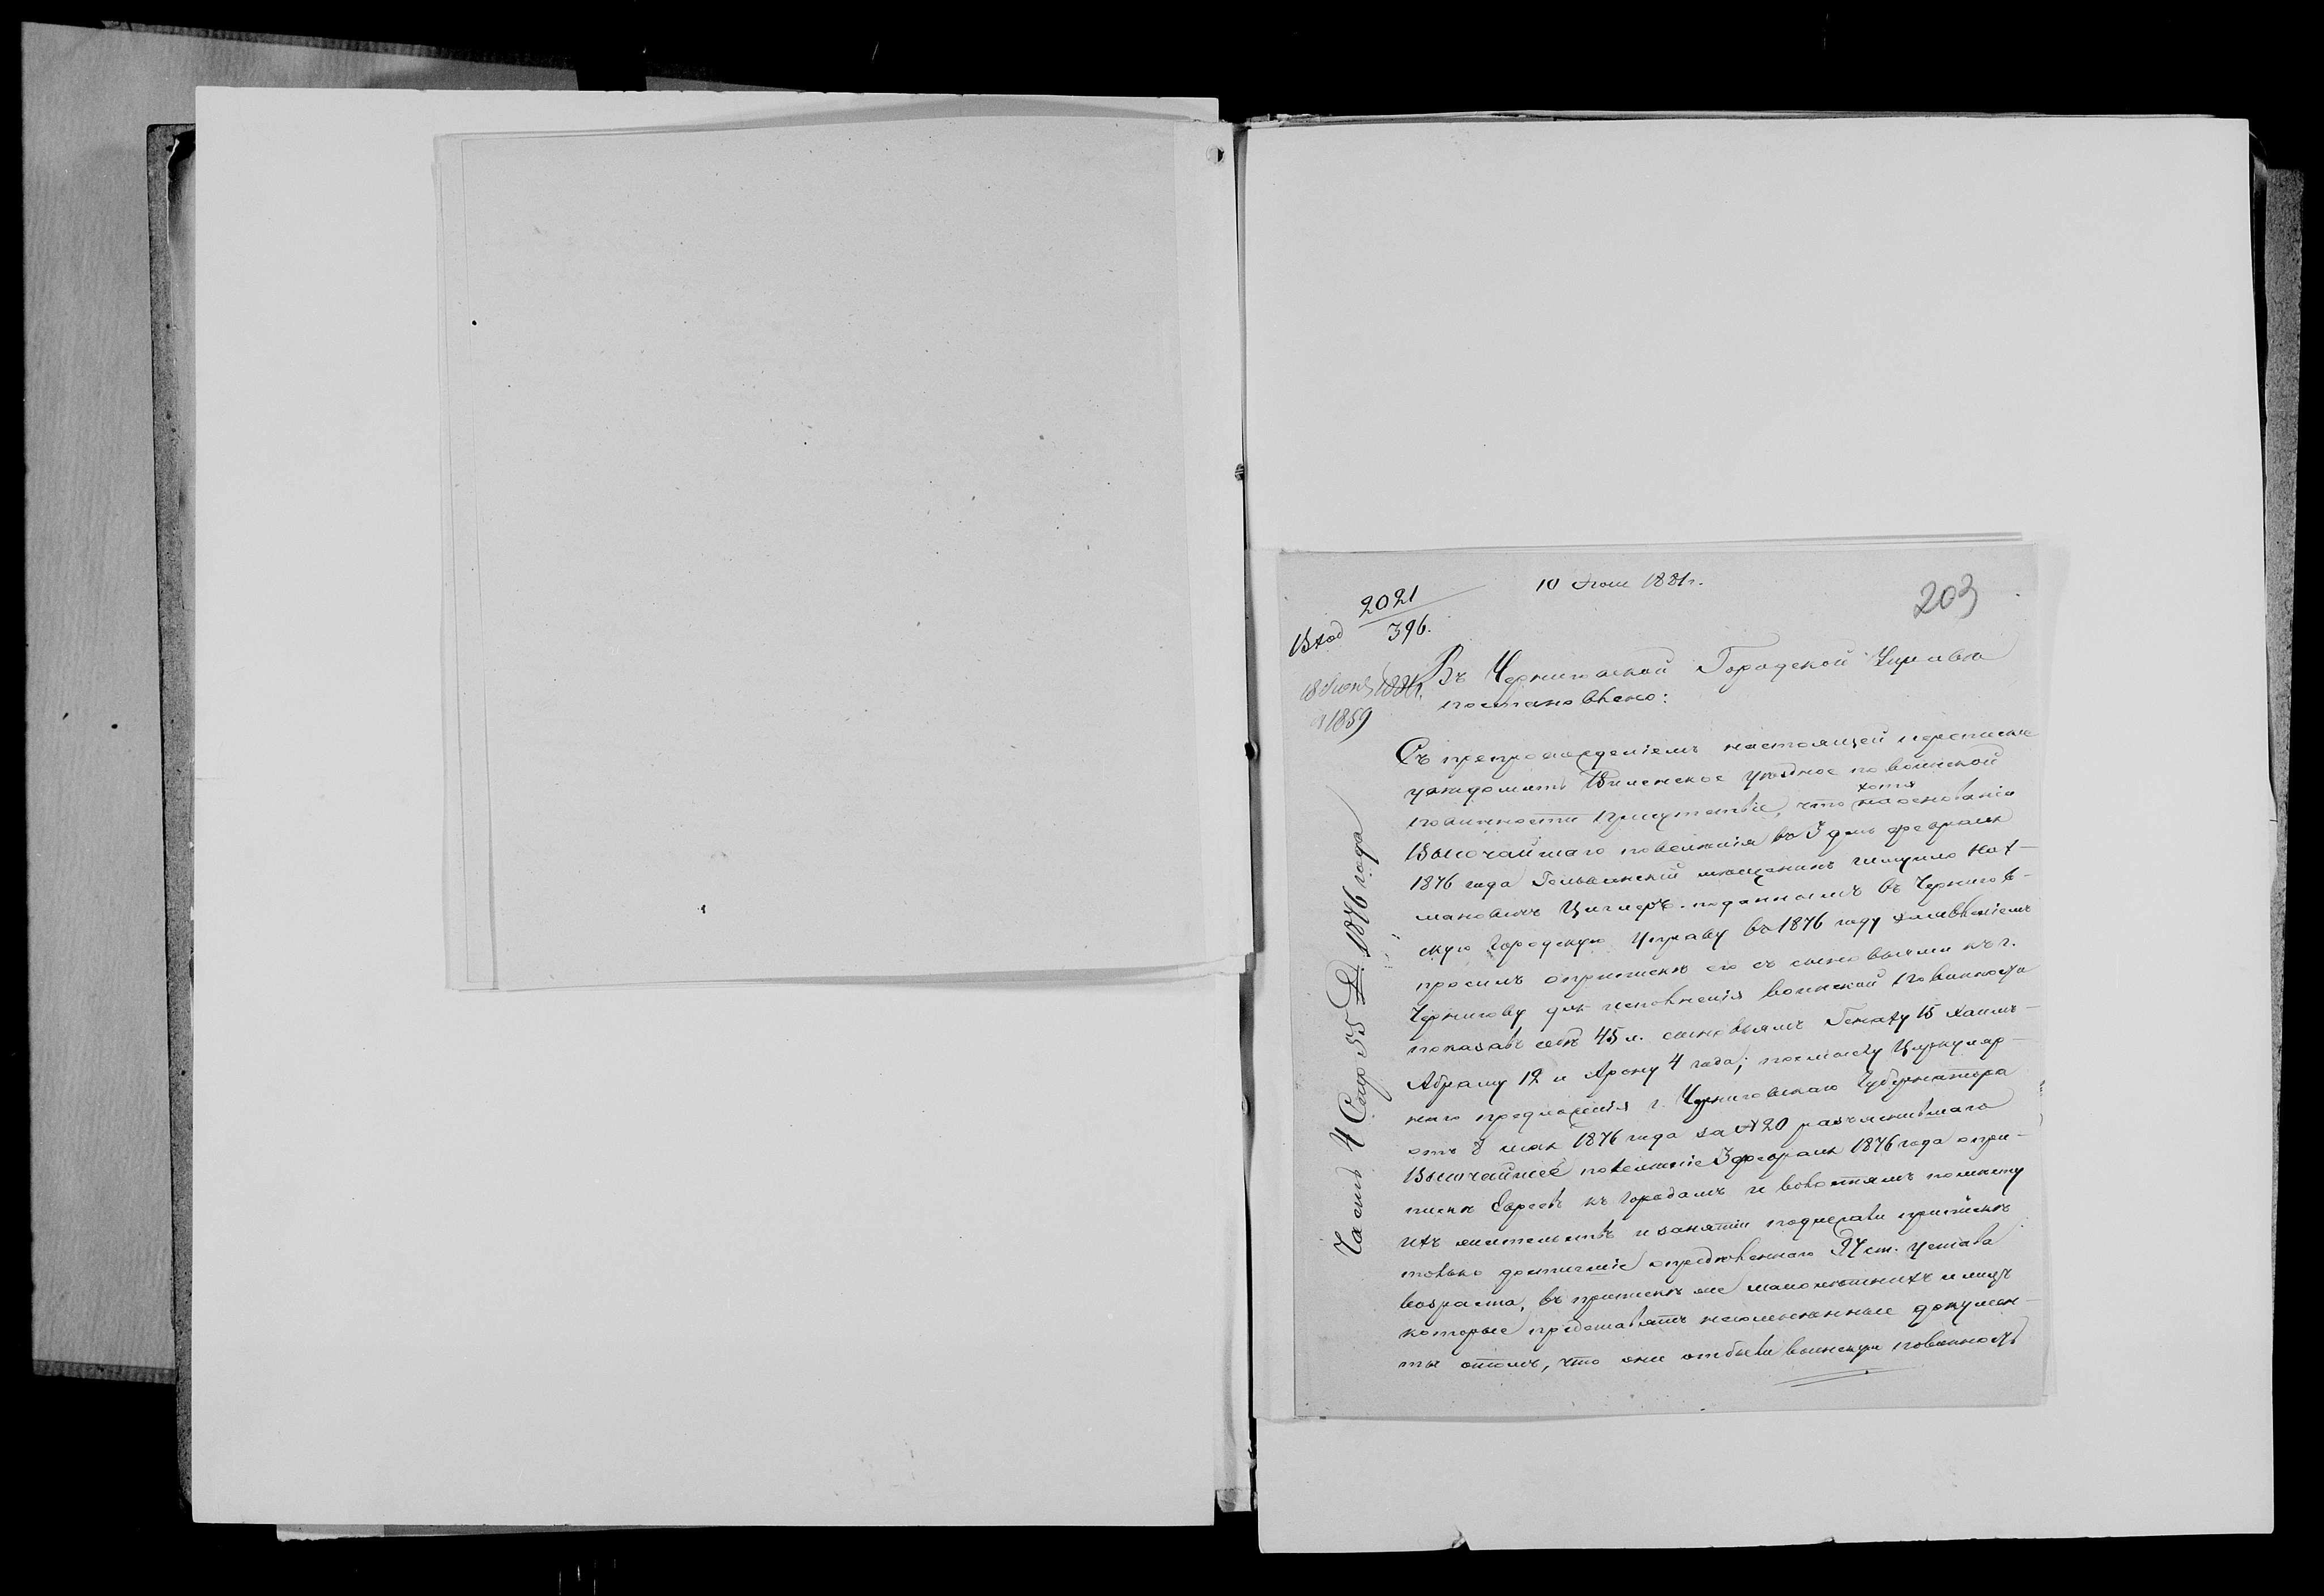 10 Июня 1881 г.
203
2021
Вход 396.
18 Июня 1881 г.
№ 1859
Въ Черниговской Городской Управѣ
постановлено:
Съ препровожденіемъ настоящей переписки
увѣдомить Виленское уѣздное по воинской
повинности Присутствіе, что хотя на основаніи
Высочайшаго повелѣнія въ 3 день февраля
1876 года Гельванскій мѣщанинъ Нох-
мановичъ поданнымъ въ Чернигов-
скую Городскую Управу въ 1876 году заявленіемъ
просилъ о припискѣ его съ сыновьями къ г.
Чернигову для исполненія воинской повинности
показавъ себѣ 45 л. сыновьямъ Генаху 15 Хаимъ-
Абраму 12 и Арону 4 года; но въ силу Циркуляр-
наго предложенія г. Черниговскаго Губернатора
отъ 8 мая 1876 года за № 20 разъяснившаго
Высочайшее повелѣніе 3 февраля 1876 года о при-
пискѣ Евреевъ къ городамъ и волостямъ по мѣсту
ихъ жительствъ и занятій подлежали припискѣ
только достигшіе опредѣленнаго 97 ст. устава
возраста, въ припискѣ же малолѣтнихъ и лицъ
которые представятъ несомнѣнные докумен-
ты о томъ, что они отбыли воинскую повинность
Часть 4 Стр 55 Д. 1876 года